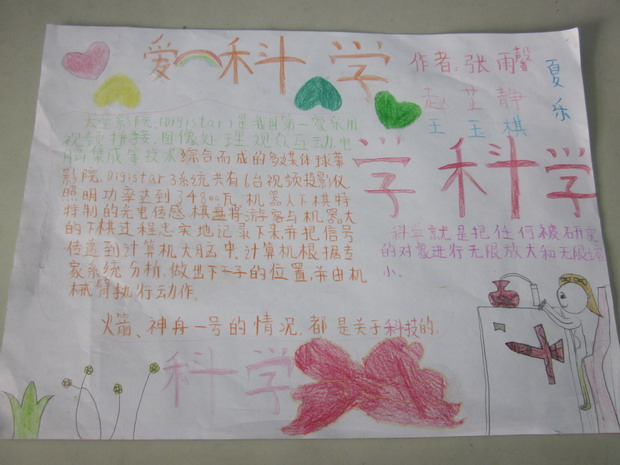 爱科学
作者:张雨馨
赵芷静
王玉棋
夏乐
太空影院(Digistar)是我国第一套采用
视频拼接、图像处理、观众互动、电
脑集成等技术综合而成的多媒体球幕
影院。Digistar3系统共有6台视频投影仪,
照明功率达到了4800瓦。机器人下棋特
特制的光电传感棋盘将游客与机器人
的下棋过程忠实地记录下来并把信号
传递到计算机大脑中,计算机根据专
家系统分析,做出下一子的位置,并由机
械臂执行动作。
火箭、神舟一号的情况,都是关于科技的。
学科学
科学就是把任何被研究
的对象进行无限放大和无限缩
小。
科学